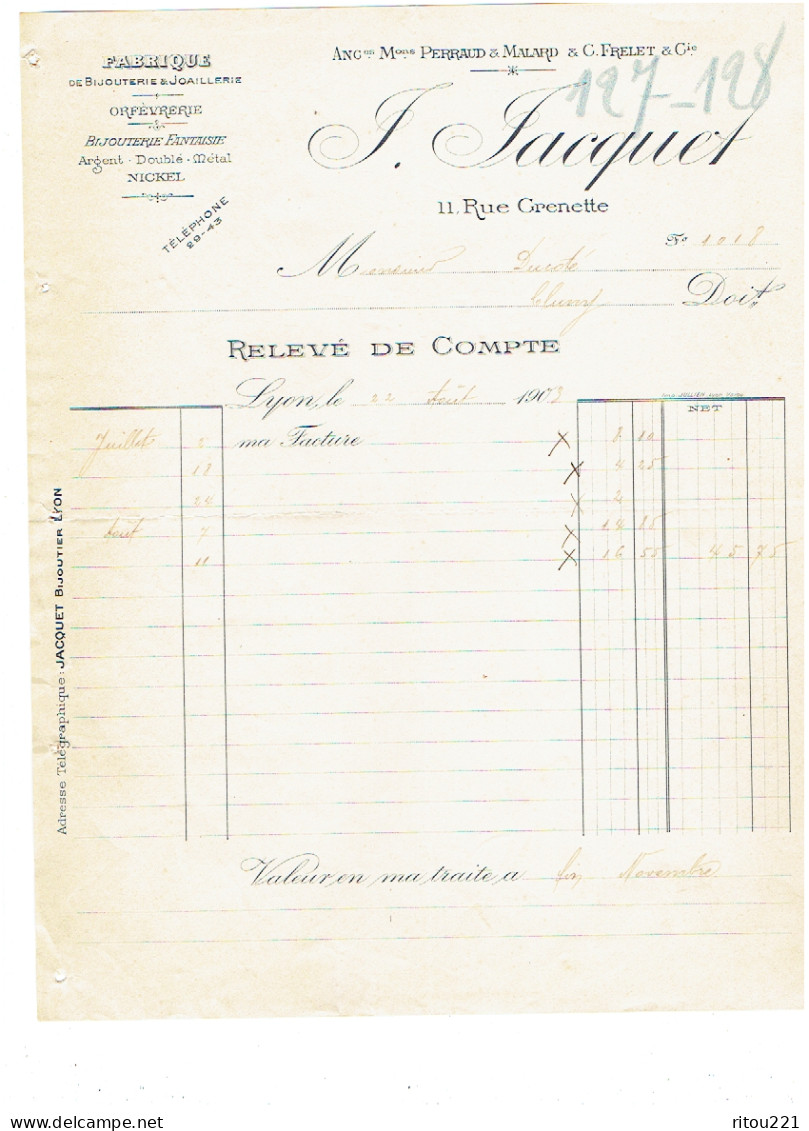 FABRIQUE
DE BIJOUTERIE & JOAILLERIE
ORFÈVRERIE
BIJOUTERIE FANTAISIE
Argent - Doublé - Métal
NICKEL
TÉLÉPHONE
29-43
ANCen Mons PERRAUD & MALARD & C. FRELET & Cie
127-128
J. Jacquet
11, Rue Grenette
Fo 1018
Monsieur Ducoté
Cluny Doit
RELEVÉ DE COMPTE
Lyon, le 22 Août 1903
NET
Juillet ma Facture 8 10
18 4 25
24 2
Août 7 14 85
11 16 55 45 75
Adresse Télégraphique: JACQUET BIJOUTIER LYON
Valeur en ma traite a fin Novembre
ritou221